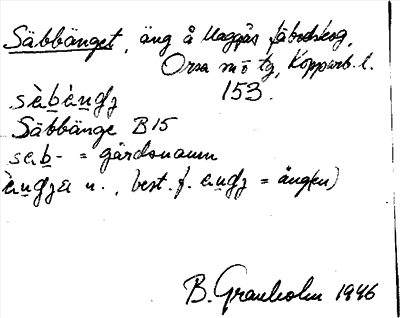 Säbbänget, äng å Maggås fäbodskog,
Orsa sn o tg, Kopparb. l.
sὲbὲndʒ 153.
Säbbänge B15
sɛb- = gårdsnamn
ὲndʒa n., best. f. ɛndʒ = äng(en)
B. Granholm 1946